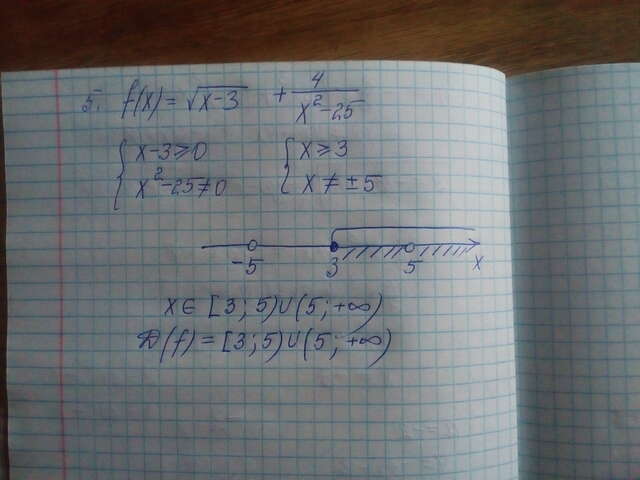 5. f(x) = √x-3 + 4/x²-25
{ x-3≥0 { x≥3
x²-25≠0 x≠±5
-5 3 5 x
x∈ [3; 5)∪(5; +∞)
D(f) = [3; 5)∪(5; +∞)